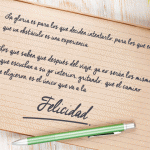 La gloria es para los que deciden intentarlo, para los que
que un obstáculo es una experiencia
los que saben que después del viaje, ya no serán los mismos
que escuchan a su yo interior, gritando que el camino
eligieron es el único que va a la
Felicidad